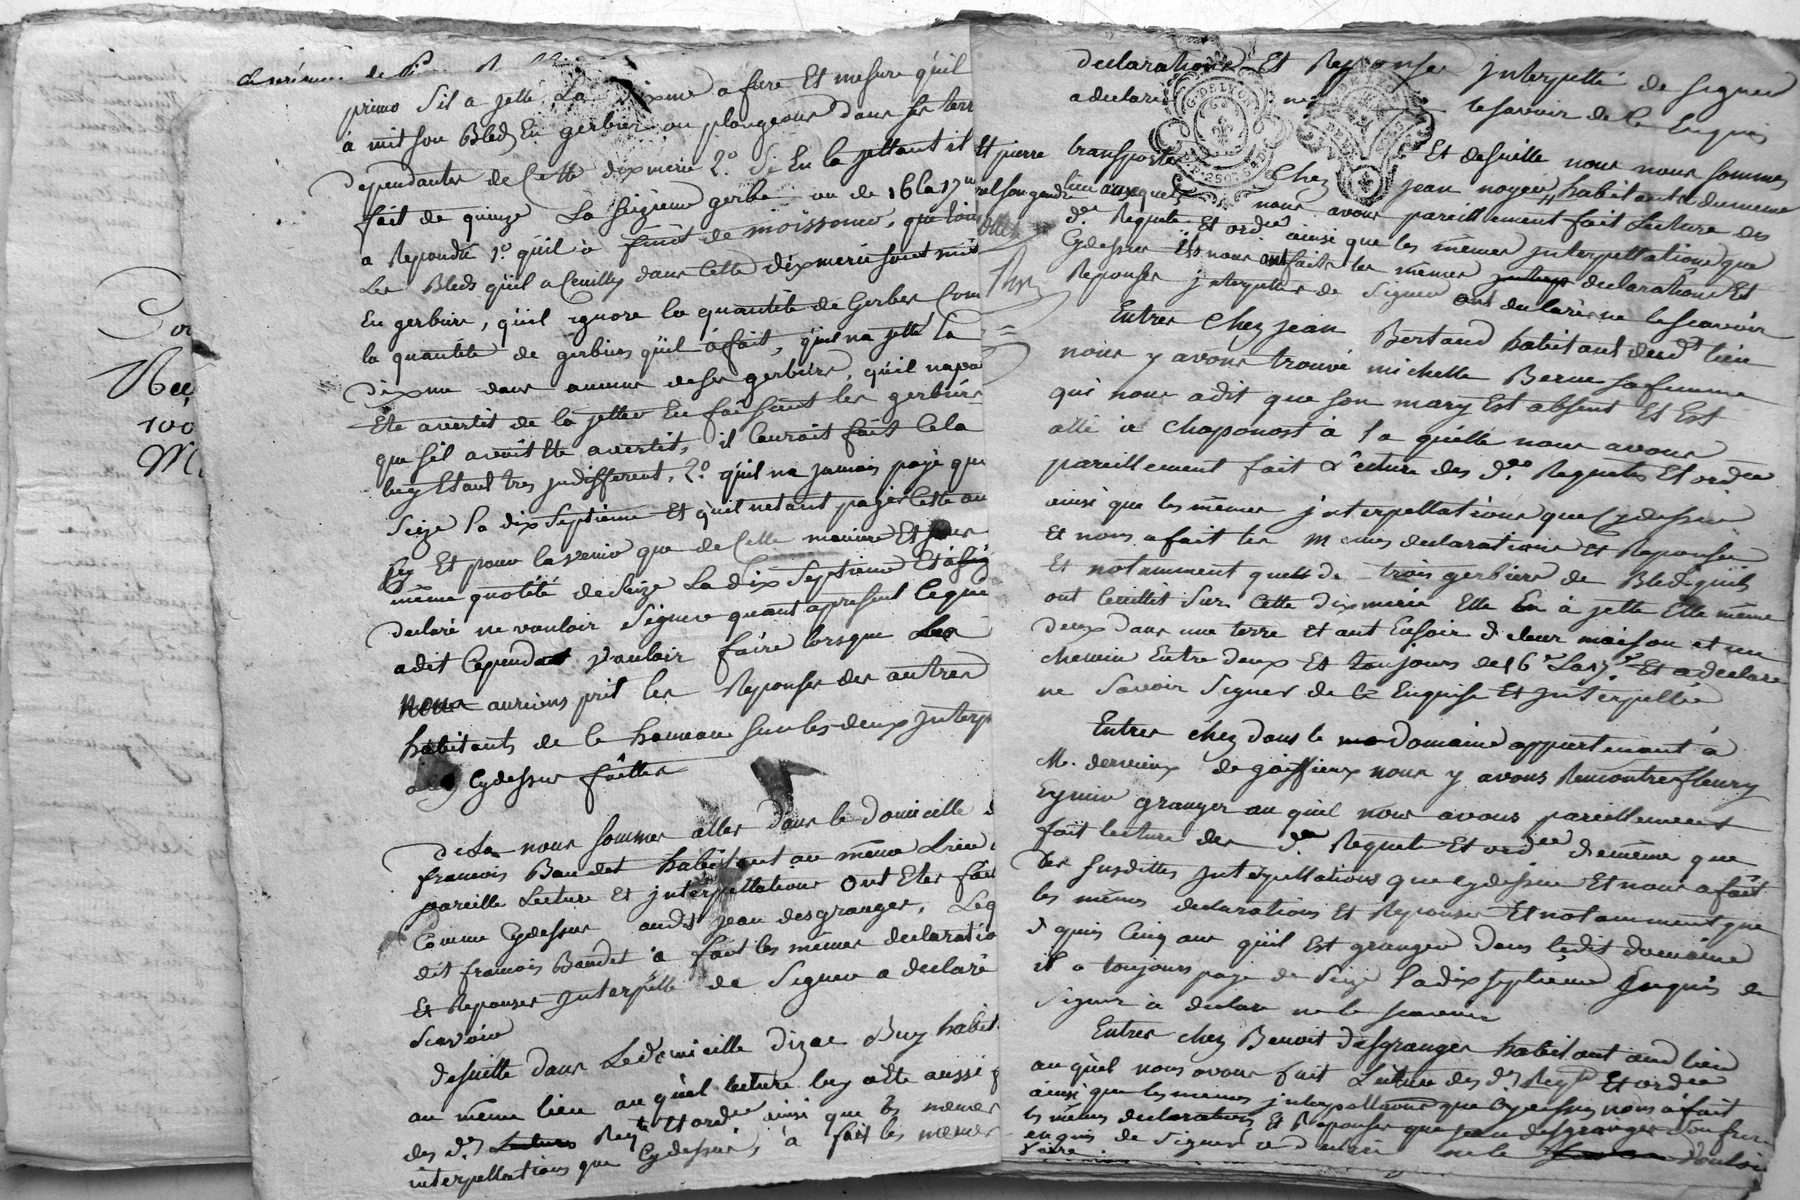 primo s'il a jetté La Dixme a fure Et mesure qu'il
à mit son Bled En gerbier ou plongeons dans les terr
dependantes de Cette dixmerie 2.° Si En la jettant il
fait de quinze La seizieme gerbe ou de 16 la 17.me
a Repondu 1.° qu'il à finit de moissonner, que tous
Les Bleds qu'il a Ceuilly dans Cette dixmerie sont mit
En gerbiere, qu'il ignore la quantité de Gerbes Com
la quantité de gerbiers qu'il à fait, qu'il na jetté la
Dixme dans aucune de ses gerbiere, qu'il napas
Ete avertit de la jetter En faissant les gerbiere
que s'il avoit Eté avertit, il lauroit fait Cela
luy Etant tres indifferent, 2.° qu'il na jamais payé que
Seize la dix Septieme Et qu'il netant payer Cette an
Et pour lavenir que de Cette maniere Et
même quotité de Seize La dix Septieme Et à
declaré ne vouloir Signer quant apresent Ceque
adit Cependant Vouloir faire lorsque
Nous aurions prit les Reponses des autres
habitants de Ce hameau sur les deux Interp
Cydessus faittes
De La nous sommes alles dans le domicille
francois Baudet habitant au même Lieu
pareille Lecture Et interpellations ont Etes fai
Comme Cydessus aud.t jean desgranges, Leq
dit francois Baudet à fait les mêmes declaratio
Et Reponses Interpellé de Signer a declaré
Scavoir
desuitte dans Le domicille dizac Buy habit
au même lieu auquel lecture luy aété aussi
des d.es Req.te Et ord.ce ainsi que les memes
interpellations que Cydessus, à fait les memes
declarations Et Reponses Interpellé de signer
a declaré ne le Savoir de Ce Enquis
Et desuitte nous nous sommes
transportés Chez jean noyer, habitant dumeme
lieu auxquels nous avons pareillement fait Lecture des
d.es Requete Et ord.ce ainsi que les mêmes interpellations que
Cydessus Ils nous ont faits les mêmes declarations Et
Reponses interpellés de Signer ont declarés ne le Scavoir
Et pierre
son gendre
Entres Chez jean Bertaud habitant dud.t lieu
nous y avons trouvé michelle Berne sa femme
qui nous adit que son mary Est absent Et Est
allé à Chaponost à laquelle nous avons
pareillement fait Lecture des d.es Requetes Et ord.ce
ainsi que les mêmes interpellations que Cydessus
Et nous afait les memes declarations Et Reponses
Et notamment que de trois gerbiere de Bled qu'ils
ont Ceuillit Sur Cette dixmerie Elle En à jetté Elle même
deux dans une terre Etant Ensoir de leur maison et un
chemin Entre deux Et toujours de 16.e La 17.e Et a declaré
ne Savoir Signer de Ce Enquise Et Interpellée
Entres chez dans le domaine appartenant à
M. dervieux de goiffieux nous y avons Rencontre fleury
Eymin granger au quel nous avons pareillement
fait lecture des d.es Requete Et ord.ce de même que
des susdittes Interpellations que cydessus Et nous afait
les mêmes declarations Et Reponses Et notamment que
depuis Cinq ans qu'il Est granger dans ledit domaine
il a toujours payé de Seize la dix septieme Enquis de
Signer à declaré ne le scavoir
Entres chez Benoit Desgranges habitant aud lieu
au quel nous avons fait Lecture des d.es Req.te Et ord.ce
ainsi que les memes interpellations que Cydessus nous à fait
les mêmes declarations Et Reponses que jean desgranges son frere
enquis de Signer a declaré ne le Vouloir
faire